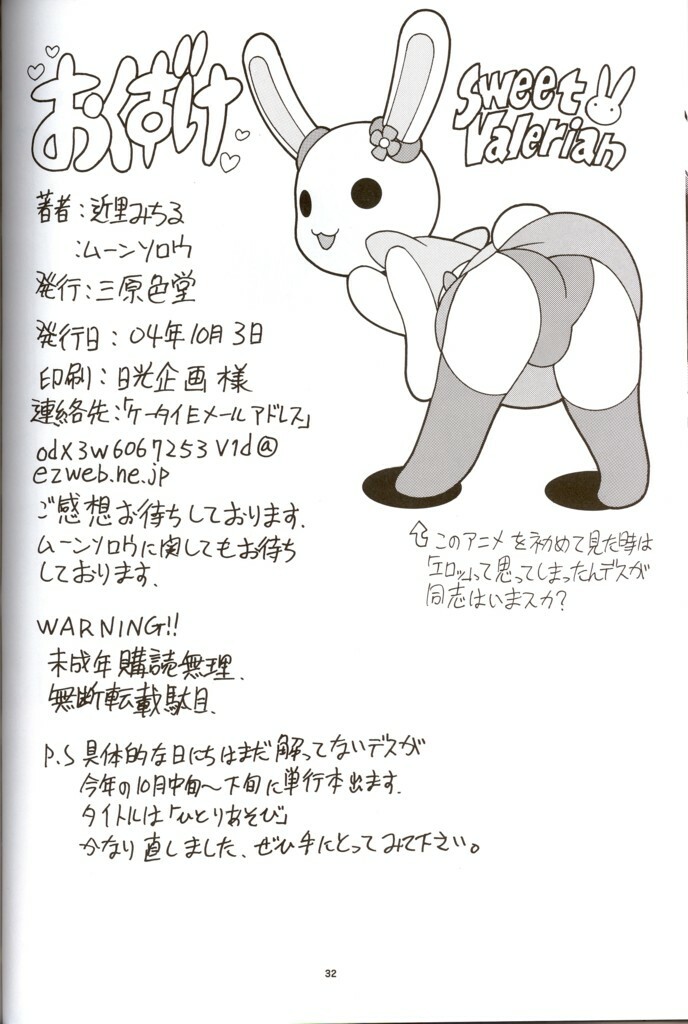 おくばけ
Sweet
Valerian
著者:近里みちる
:ムーンソロウ
発行:三原色堂
発行日:04年10月3日
印刷:日光企画様
連絡先:「ケータイEメールアドレス」
odx3w6067253v1d@
ezweb.ne.jp
ご感想お待ちしております.
ムーンソロウに関してもお待ち
しております.
⇧このアニメを初めて見た時は
「エロッ」って思ってしまったんデスが
同志はいまスカ?
WARNING!!
未成年購読無理.
無断転載駄目.
P.S 具体的な日にちはまだ解ってないデスが
今年の10月中旬〜下旬に単行本出ます.
タイトルは「ひとりあそび」
かなり直しました、ぜひ手にとってみて下さい。
32